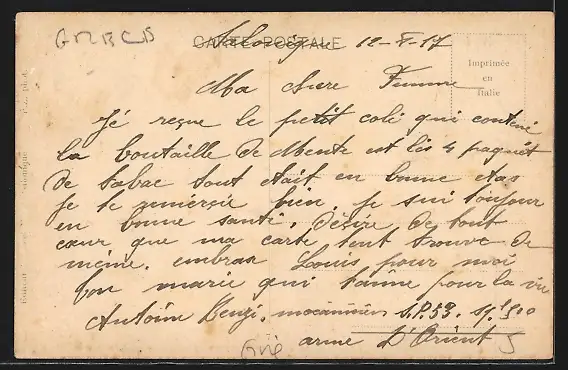 CARTE POSTALE
Salonique 12-5-17
Imprimée
en
Italie
Ma chere Femme
Jé reçue le petit coli qui contené
la boutaille de Mente est les 4 paquét
de tabac tout etait en bonne etas
je te remersie bien. je sui toujour
en bonne santé, désire de tout
cœur que ma carte tent trouve de
même. embras Louis pour moi
ton marie qui t'aime pour la vie
Antoine mecanicien S.P. 53.
armé D'Orient